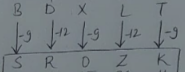 B D X L T
-9 -12 -9 -12 -9
S R O Z K